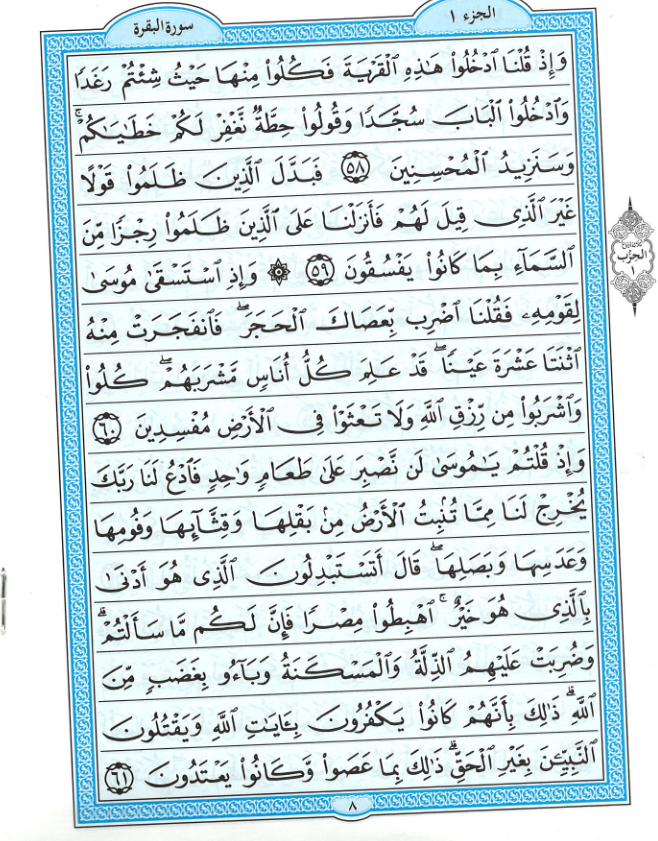 الجزء ١
سورة البقرة
وَإِذْ قُلْنَا ٱدْخُلُوا۟ هَـٰذِهِ ٱلْقَرْيَةَ فَكُلُوا۟ مِنْهَا حَيْثُ شِئْتُمْ رَغَدًا
وَٱدْخُلُوا۟ ٱلْبَابَ سُجَّدًا وَقُولُوا۟ حِطَّةٌ نَّغْفِرْ لَكُمْ خَطَـٰيَـٰكُمْ ۚ
وَسَنَزِيدُ ٱلْمُحْسِنِينَ ٥٨ فَبَدَّلَ ٱلَّذِينَ ظَلَمُوا۟ قَوْلًا
غَيْرَ ٱلَّذِى قِيلَ لَهُمْ فَأَنزَلْنَا عَلَى ٱلَّذِينَ ظَلَمُوا۟ رِجْزًا مِّنَ
ٱلسَّمَآءِ بِمَا كَانُوا۟ يَفْسُقُونَ ٥٩ ۞ وَإِذِ ٱسْتَسْقَىٰ مُوسَىٰ
لِقَوْمِهِۦ فَقُلْنَا ٱضْرِب بِّعَصَاكَ ٱلْحَجَرَ ۖ فَٱنفَجَرَتْ مِنْهُ
ٱثْنَتَا عَشْرَةَ عَيْنًا ۖ قَدْ عَلِمَ كُلُّ أُنَاسٍ مَّشْرَبَهُمْ ۖ كُلُوا۟
وَٱشْرَبُوا۟ مِن رِّزْقِ ٱللَّهِ وَلَا تَعْثَوْا۟ فِى ٱلْأَرْضِ مُفْسِدِينَ ٦٠
وَإِذْ قُلْتُمْ يَـٰمُوسَىٰ لَن نَّصْبِرَ عَلَىٰ طَعَامٍ وَٰحِدٍ فَٱدْعُ لَنَا رَبَّكَ
يُخْرِجْ لَنَا مِمَّا تُنۢبِتُ ٱلْأَرْضُ مِنۢ بَقْلِهَا وَقِثَّآئِهَا وَفُومِهَا
وَعَدَسِهَا وَبَصَلِهَا ۖ قَالَ أَتَسْتَبْدِلُونَ ٱلَّذِى هُوَ أَدْنَىٰ
بِٱلَّذِى هُوَ خَيْرٌ ۚ ٱهْبِطُوا۟ مِصْرًا فَإِنَّ لَكُم مَّا سَأَلْتُمْ ۗ
وَضُرِبَتْ عَلَيْهِمُ ٱلذِّلَّةُ وَٱلْمَسْكَنَةُ وَبَآءُو بِغَضَبٍ مِّنَ
ٱللَّهِ ۗ ذَٰلِكَ بِأَنَّهُمْ كَانُوا۟ يَكْفُرُونَ بِـَٔايَـٰتِ ٱللَّهِ وَيَقْتُلُونَ
ٱلنَّبِيِّـۧنَ بِغَيْرِ ٱلْحَقِّ ۗ ذَٰلِكَ بِمَا عَصَوا۟ وَّكَانُوا۟ يَعْتَدُونَ ٦١
الحزب
١
٨